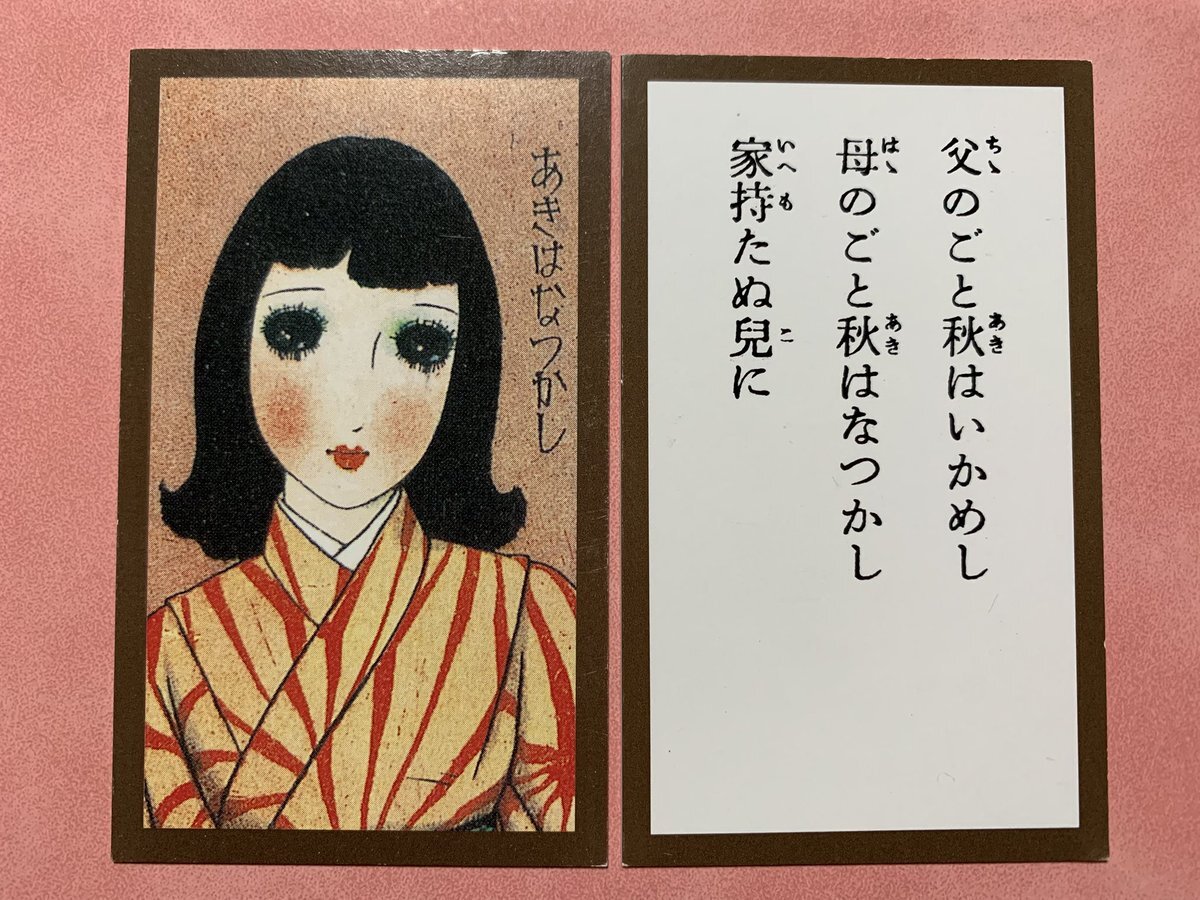 あきはなつかし
ちゝ あき
父のごと秋はいかめし
はゝ あき
母のごと秋はなつかし
いへ も こ
家持たぬ兒に